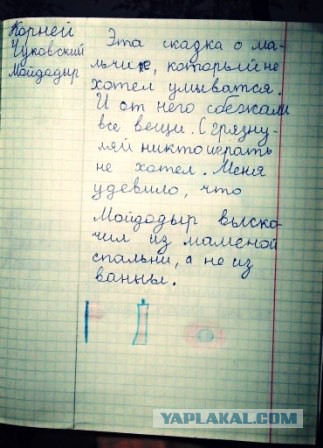 Корней
Чуковский
Мойдодыр
Эта скадка о ма-
льчике, который не
хотел умыватся.
И от него сбежали
все вещи. С грязну-
лей никто играть
не хотел. Меня
удевило, что
Мойдодыр выско-
чил из маменой
спальни, а не из
ванны.
YAPLAKAL.COM